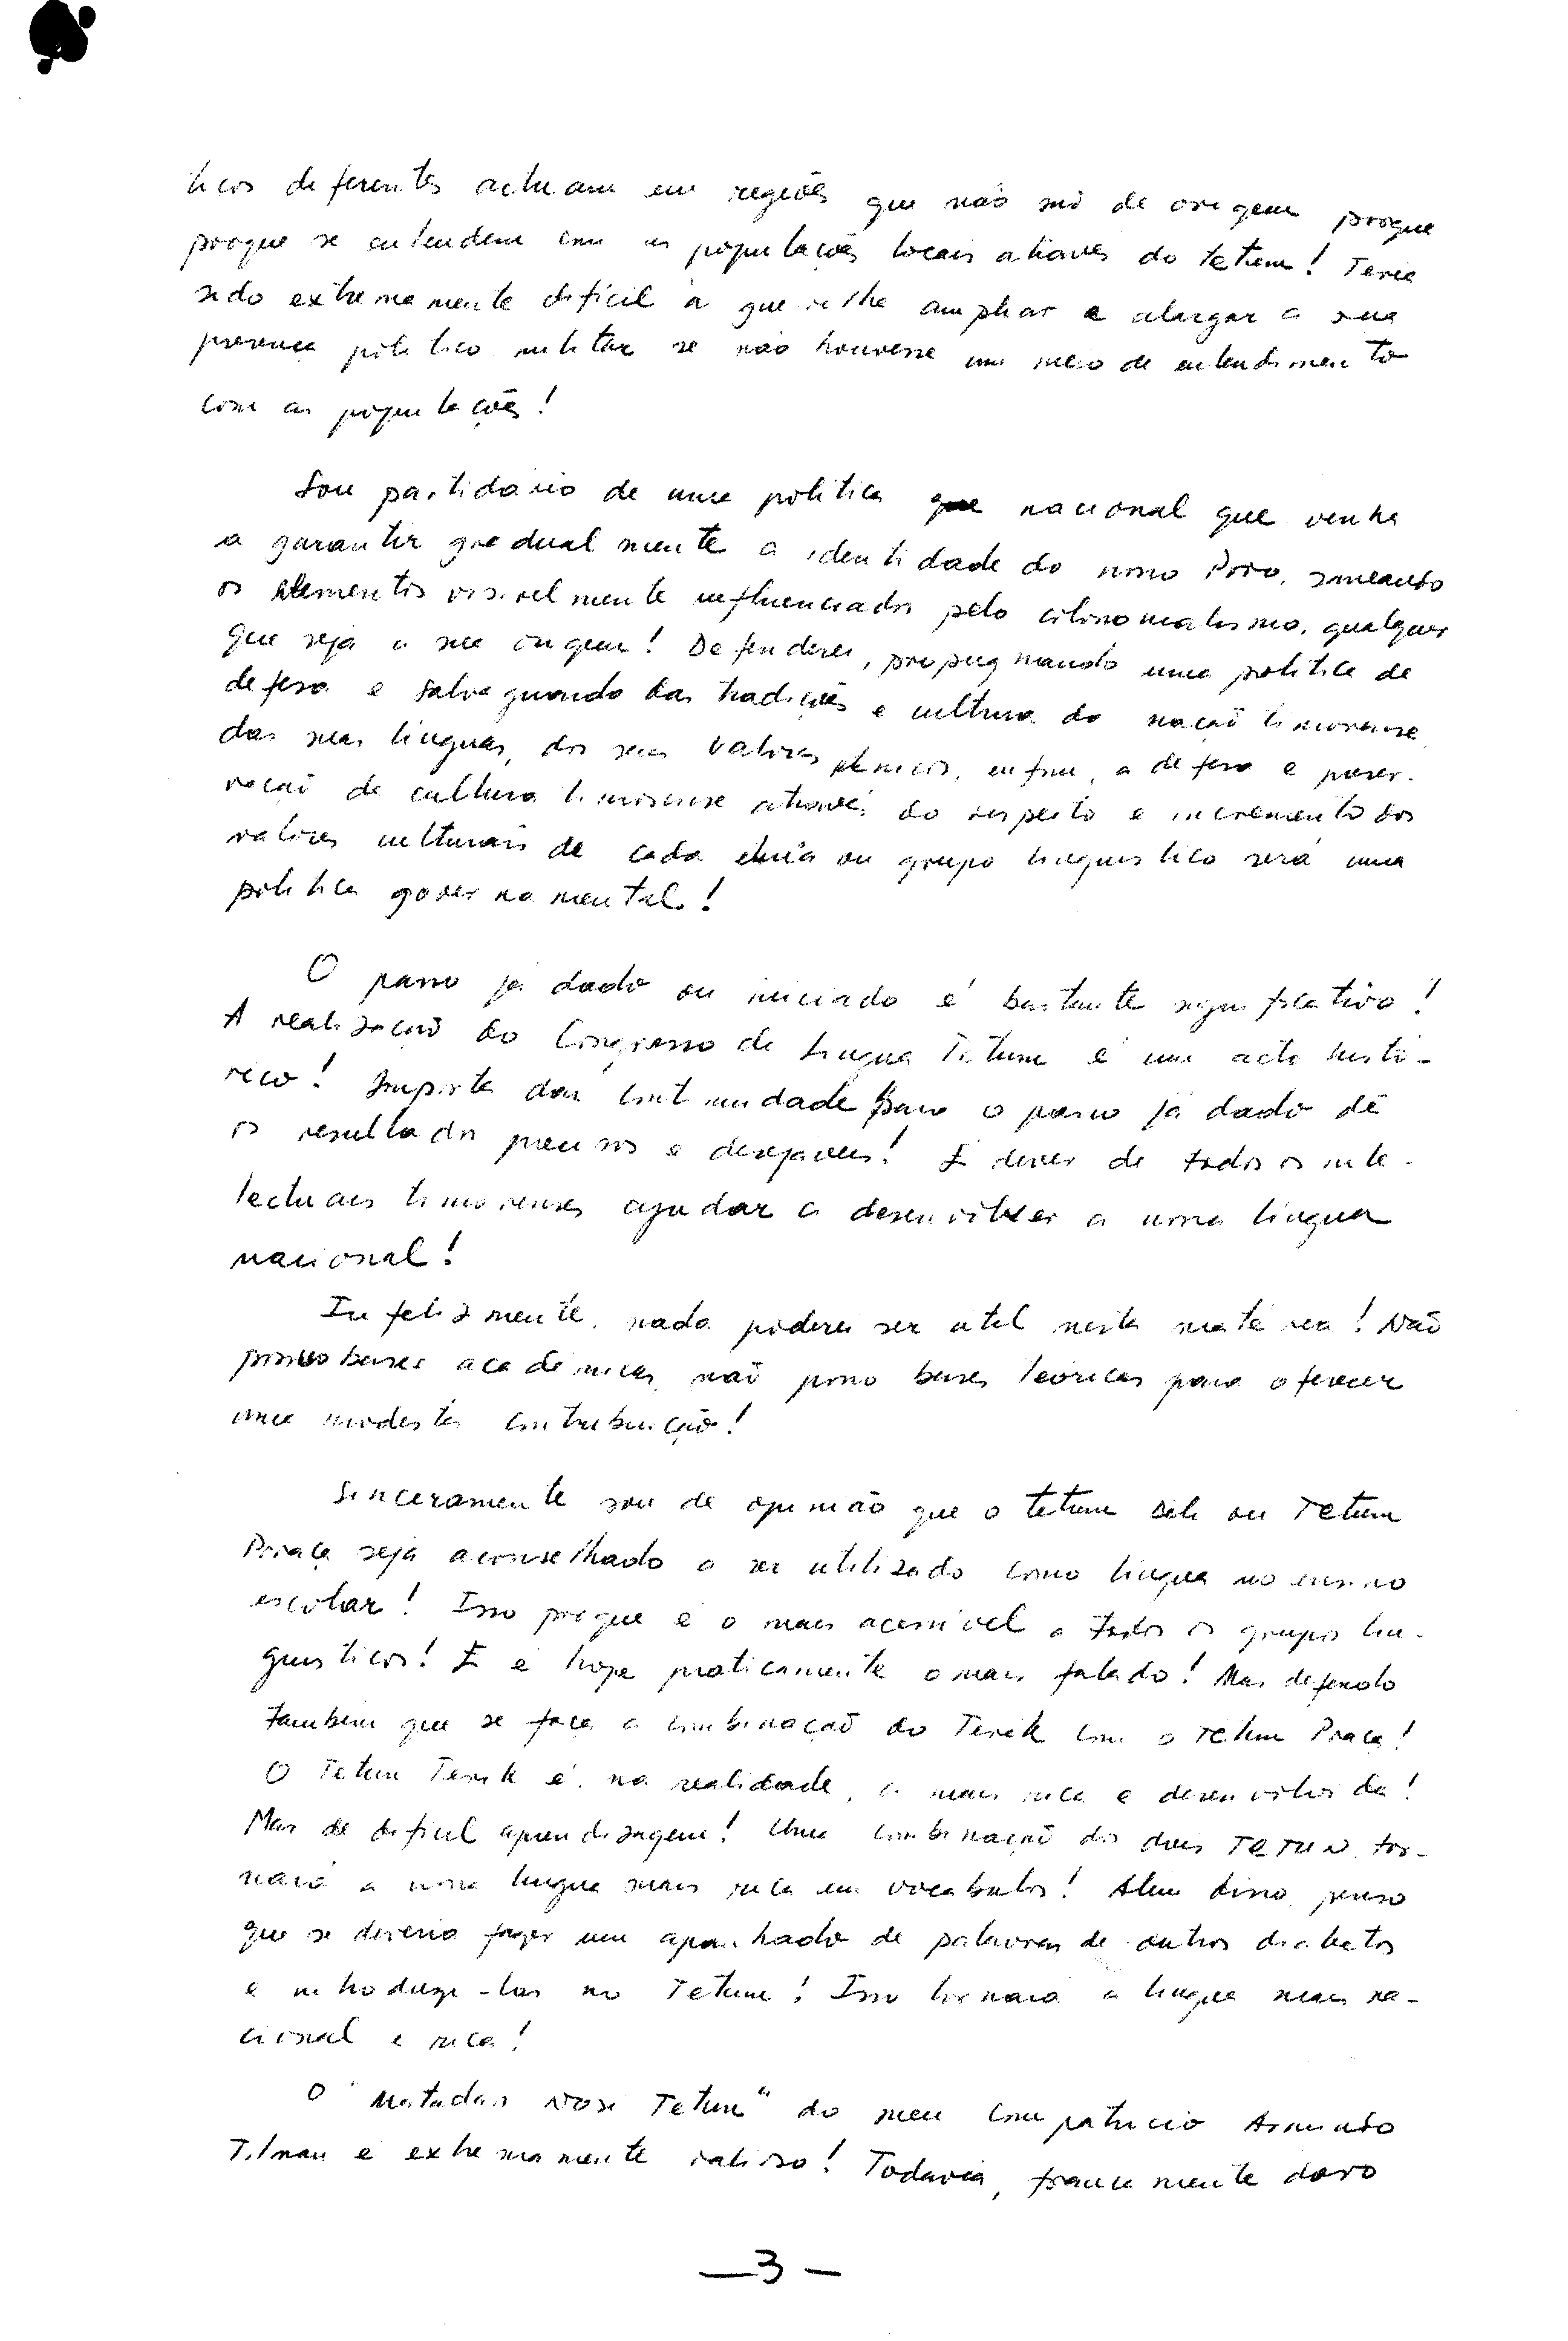 ticos diferentes actuam em regiões que não são de origem porque
porque se entendem com as populações locais através do tetum! Teria
sido extremamente dificil a guerrilha ampliar e alargar a sua
presença politico militar se não houvesse um meio de entendimento
com as populações!
Sou partidario de uma politica que nacional que venha
a garantir gradualmente a identidade do nosso Povo, saneando
os elementos visivelmente influenciados pelo colonialismo, qualquer
que seja a sua origem! Defenderei, propugnando uma politica de
defesa e salvaguarda das tradições e cultura da nação timorense
das suas linguas, dos seus valores etnicos, enfim, a defesa e preser-
vação de cultura timorense através do respeito e incremento dos
valores culturais de cada etnia ou grupo linguistico será uma
politica governamental!
O passo já dado ou iniciado é bastante significativo!
A realização do Congresso de Lingua Tetum é um acto histó-
rico! Importa dar continuidade para o passo já dado dê
os resultados precisos e desejáveis! É dever de todos os inte-
lectuais timorenses ajudar a desenvolver a nossa lingua
nacional!
Infelizmente, nada poderei ser util nesta matéria! Não
possuo bases académicas, não posso bases teóricas para oferecer
uma modesta contribuição!
Sinceramente sou de opinião que o tetum Dili ou Tetum
Praça seja aconselhado a ser utilizado como lingua no ensino
escolar! Isso porque é o mais acessível a todos os grupos lin-
guisticos! E é hoje praticamente o mais falado! Mas defendo
também que se faça a combinação do Terik com o Tetum Praça!
O Tetum Terik é, na realidade, a mais rica e desenvolvida!
Mas de dificil aprendizagem! Uma combinação dos dois TETUN, tor-
nará a nossa lingua mais rica em vocabulos! Alem disso, penso
que se deveria fazer um apanhado de palavras de outros dialectos
e introduzi-las no Tetum! Isso tornará a lingua mais na-
cional e rica!
O "Matadan Nosi Tetum" do meu compatricio Armindo
Tilman é extremamente valioso! Todavia, francamente
— 3 —